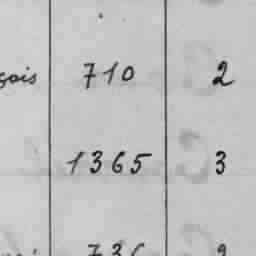 çois 710 2
1365 3